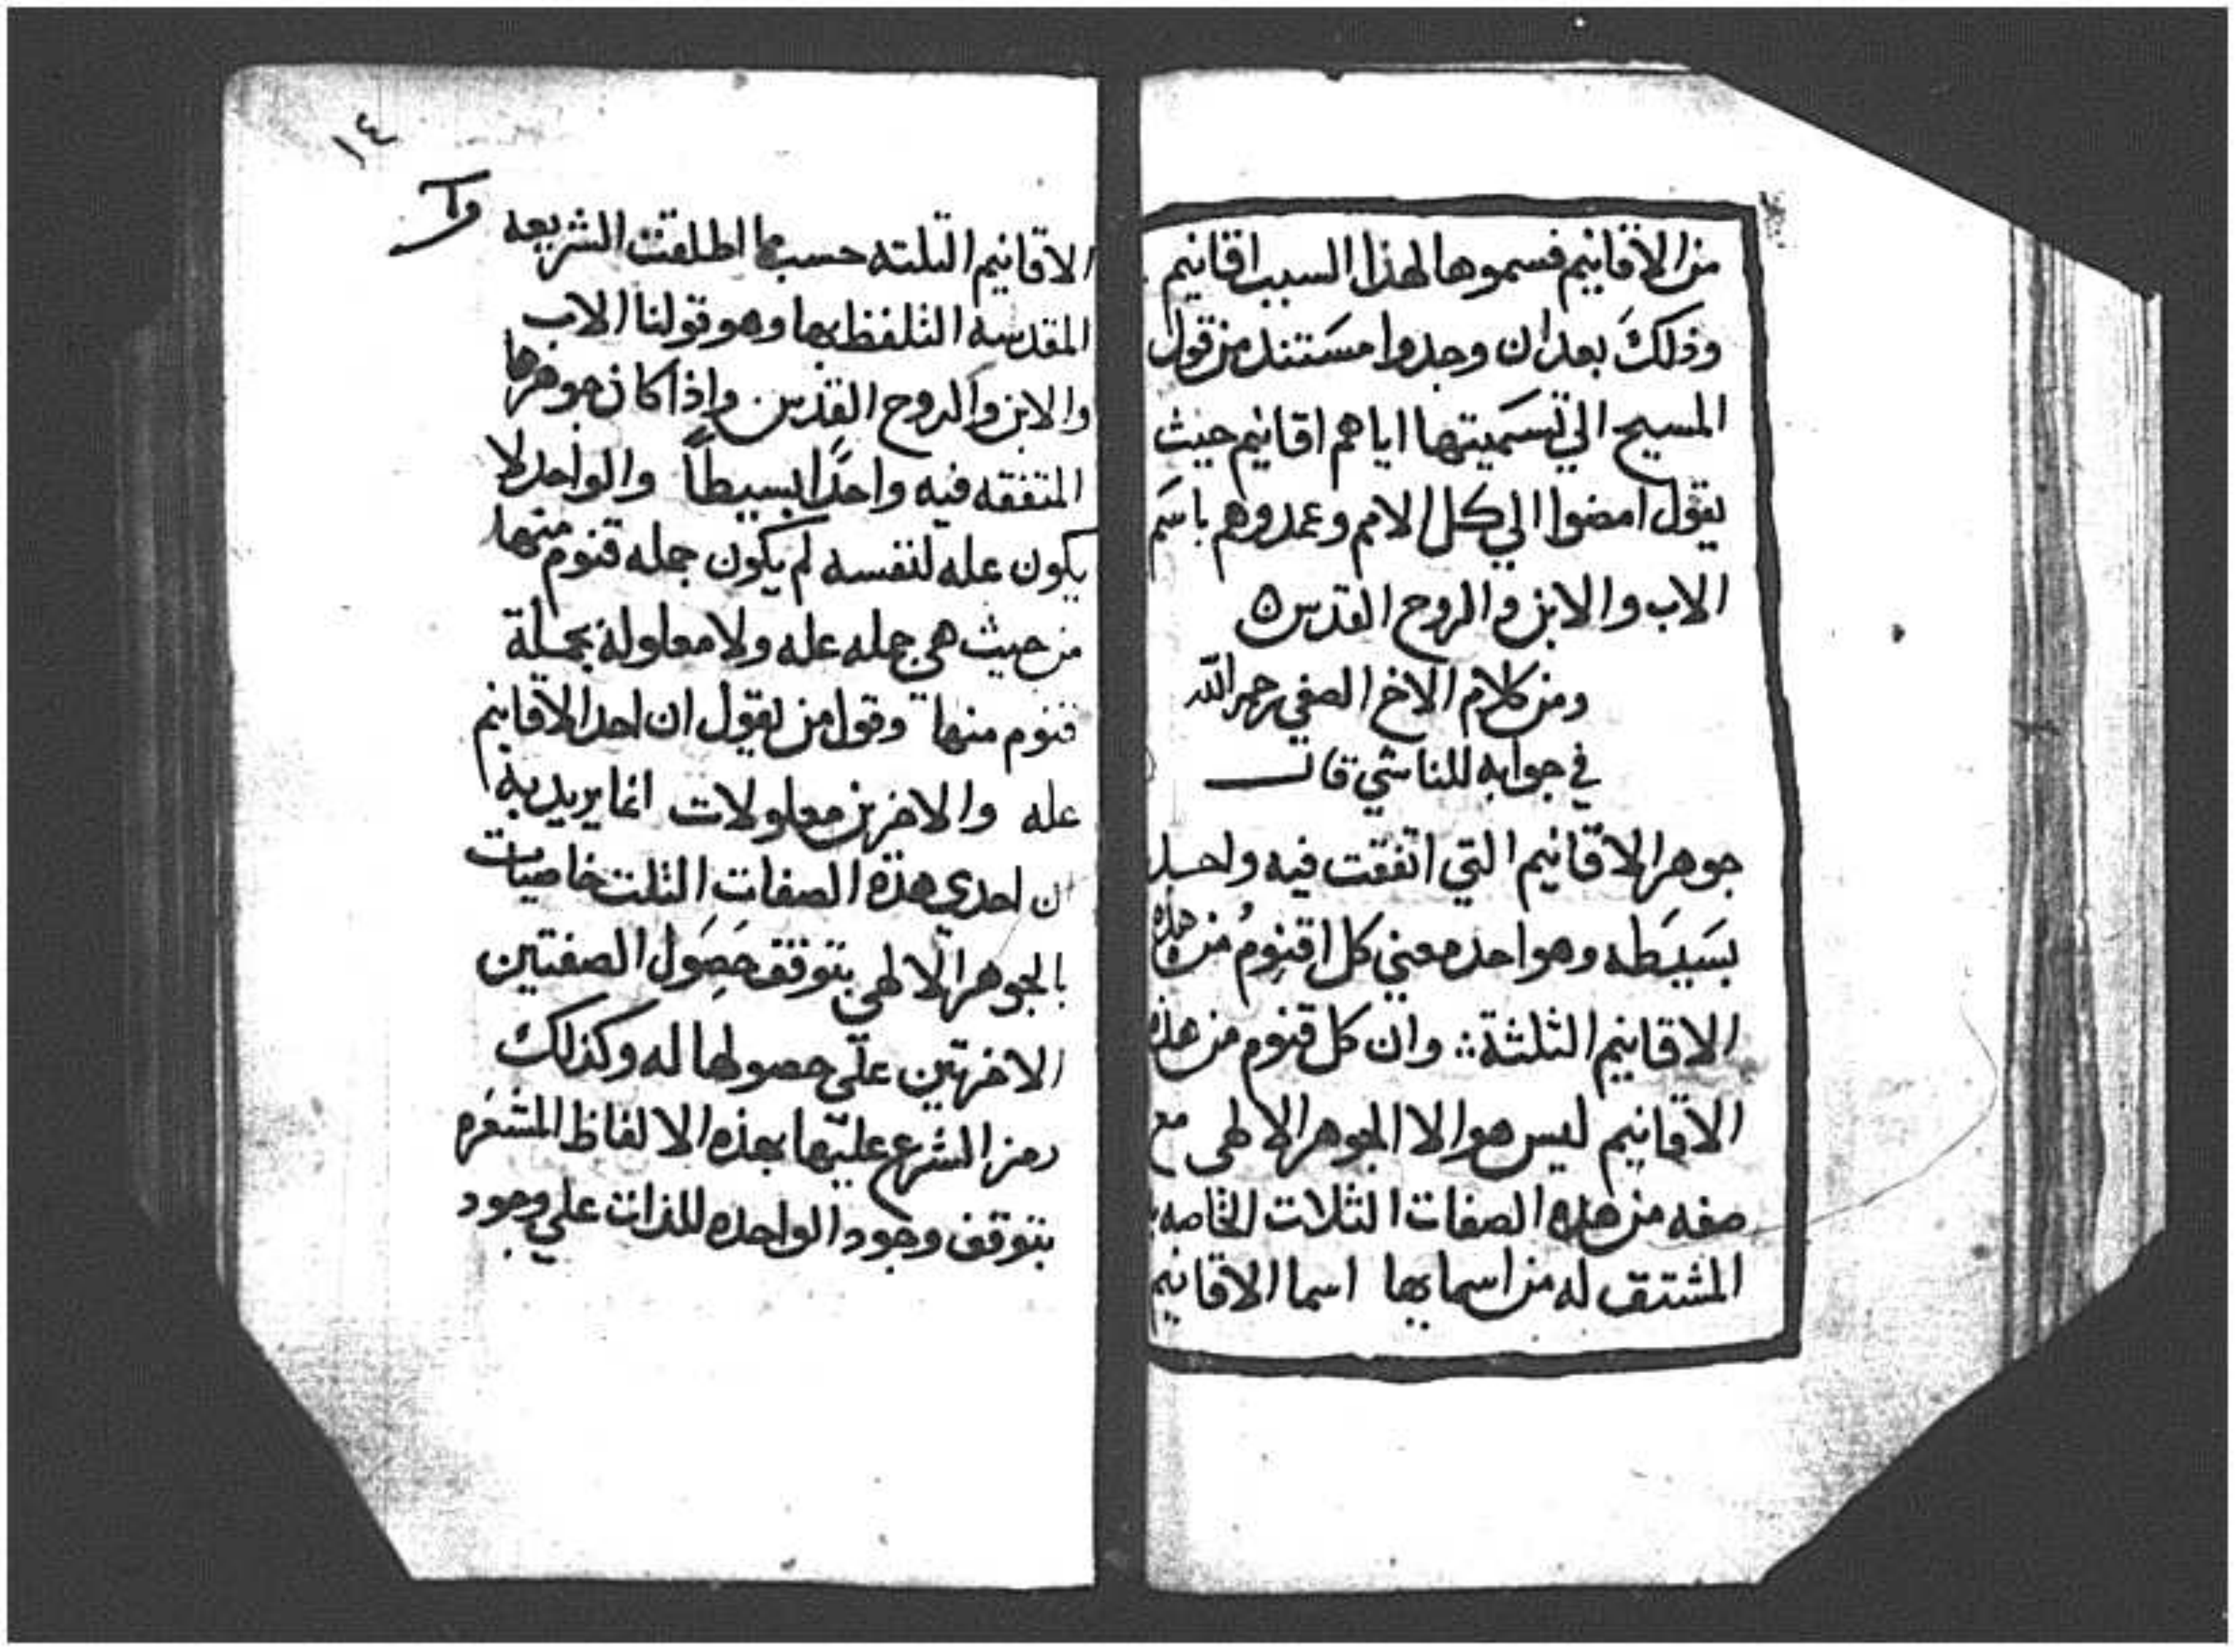 من الاقانيم فسموها لهذا السبب اقانيم
وذلك بعد ان وجدوا مستند من قول
المسيح الي تسميتها اياهم اقانيم حيث
يقول امضوا الي كل الامم وعمدوهم باسم
الاب والابن والروح القدس
ومن كلام الاخ الصفي رحمه الله
في جوابه للناشي قال
جوهر الاقانيم التي اتفقت فيه واحد
بسيطه وهو احد معني كل اقنوم من هذه
الاقانيم الثلثة وان كل قنوم من هذه
الاقانيم ليس هو الا الجوهر الالهي مع
صفه من هذه الصفات الثلاث الخاصه
المشتق له من اسمايها اسما الاقانيم
١٤
الاقانيم الثلثه حسبما اطلقت الشريعه
المقدسة التلفظ بها وهو قولنا الاب
والابن والروح القدس واذا كان جوهرها
المتفقه فيه واحدًا بسيطاً والواحد لا
يكون عله لنفسه لم يكون جمله قنوم منها
من حيث هي جمله عله ولا معلولة بجملة
قنوم منها وقول من يقول ان احد الاقانيم
عله والاخرين معلولات انما يريد به
ان احدي هذه الصفات الثلث خاصيات
بالجوهر الالهي يتوقف حصول الصفتين
الاخرتين علي حصولها له وكذلك
رمز الشرع عليها بهذه الالفاظ المشعره
بتوقف وجود الواحده للذات علي وجود